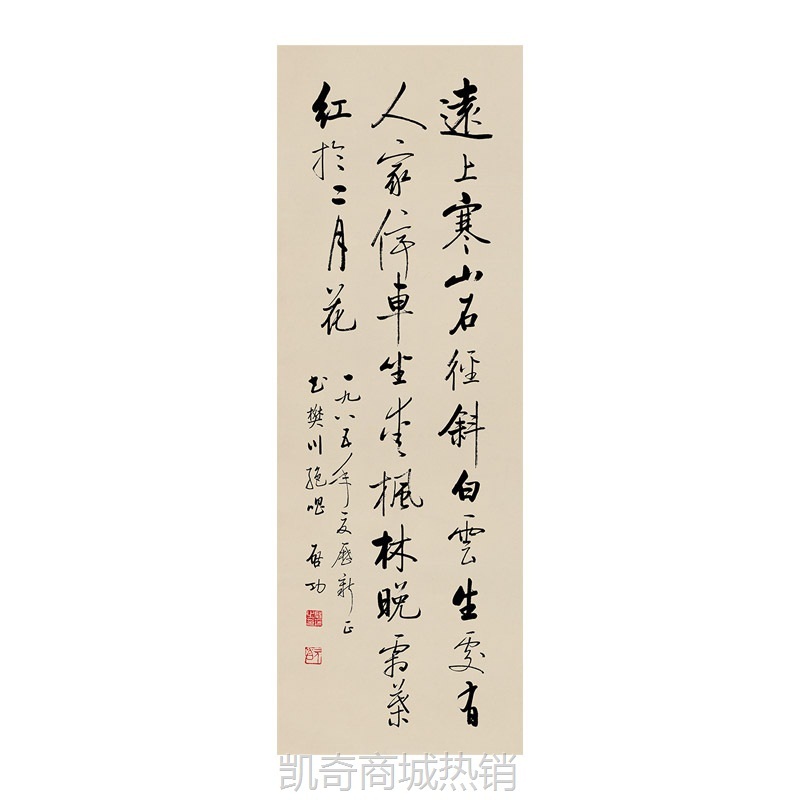 遠上寒山石徑斜白雲生處有
人家停車坐愛楓林晚霜葉
红於二月花
一九八五年夏歷新正
书樊川絕唱 啟功
凯奇商城热销